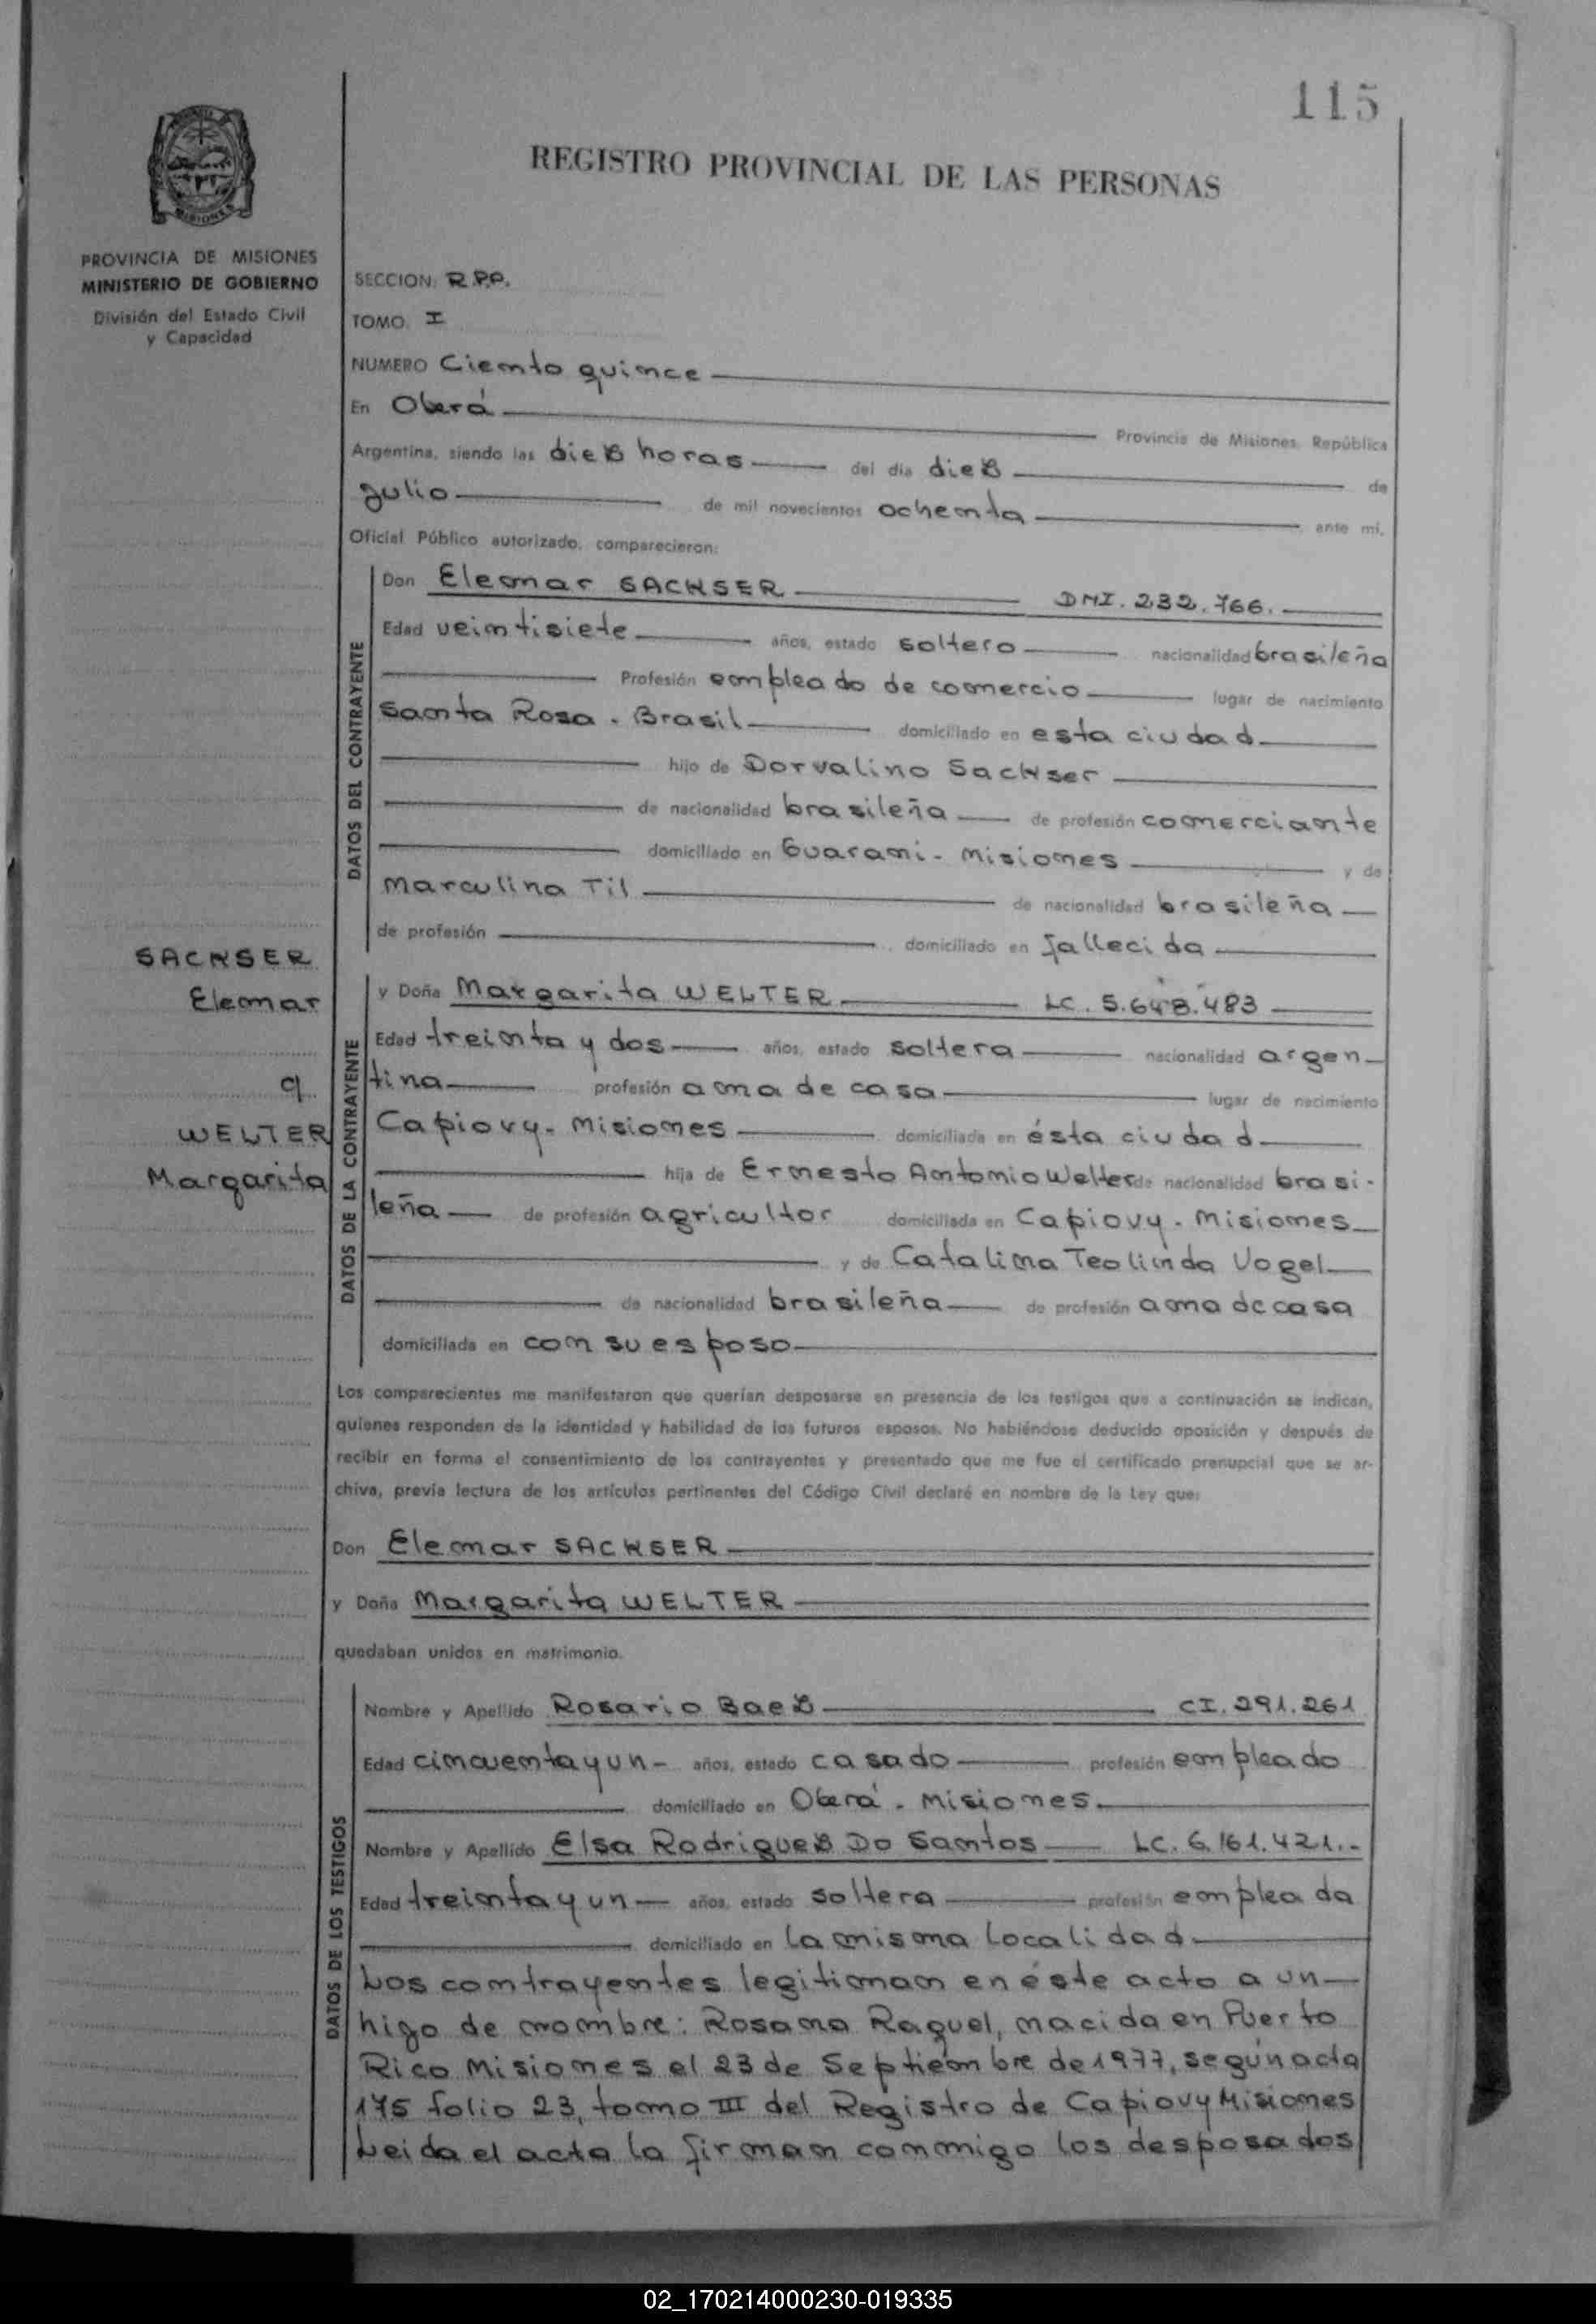 115
REGISTRO PROVINCIAL DE LAS PERSONAS
MISIONES
PROVINCIA DE MISIONES
MINISTERIO DE GOBIERNO
División del Estado Civil
y Capacidad
SECCION: R.P.P.
TOMO: I
NUMERO Ciento quince
En Oberá Provincia de Misiones, República
Argentina, siendo las diez horas del dia diez de
Julio de mil novecientos ochenta ante mí,
Oficial Público autorizado, comparecieron:
DATOS DEL CONTRAYENTE
Don Elemar SACKSER DNI. 232.766.
Edad veintisiete años, estado soltero nacionalidad brasileña
Profesión empleado de comercio lugar de nacimiento
Santa Rosa - Brasil domiciliado en esta ciudad
hijo de Dorvalino Sackser
de nacionalidad brasileña de profesión comerciante
domiciliado en Guaraní - Misiones y de
Marculina Til de nacionalidad brasileña
de profesión domiciliado en fallecida
SACKSER
Elemar
q
WELTER
Margarita
DATOS DE LA CONTRAYENTE
y Doña Margarita WELTER LC. 5.648.483
Edad treinta y dos años, estado soltera nacionalidad argen-
tina profesión ama de casa lugar de nacimiento
Capiovy - Misiones domiciliada en ésta ciudad
hija de Ernesto Antonio Welter de nacionalidad brasi-
leña de profesión agricultor domiciliada en Capiovy - Misiones
y de Catalina Teolinda Vogel
de nacionalidad brasileña de profesión ama de casa
domiciliada en con su esposo
Los comparecientes me manifestaron que querían desposarse en presencia de los testigos que a continuación se indican,
quienes responden de la identidad y habilidad de los futuros esposos. No habiéndose deducido oposición y después de
recibir en forma el consentimiento de los contrayentes y presentado que me fue el certificado prenupcial que se ar-
chiva, previa lectura de los artículos pertinentes del Código Civil declaré en nombre de la Ley que:
Don Elemar SACKSER
y Doña Margarita WELTER
quedaban unidos en matrimonio.
DATOS DE LOS TESTIGOS
Nombre y Apellido Rosario Baez CI. 291.261
Edad cincuenta y un - años, estado casado profesión empleado
domiciliado en Oberá - Misiones
Nombre y Apellido Elsa Rodriguez Do Santos LC. 6.161.421.-
Edad treinta y un años, estado soltera profesión empleada
domiciliado en la misma localidad
Los contrayentes legitiman en éste acto a un
higo de nombre: Rosana Raquel, nacida en Puerto
Rico Misiones el 23 de Septiembre de 1977, según acta
175 folio 23, tomo III del Registro de Capiovy Misiones
Leida el acta la firman conmigo los desposados
02_170214000230-019335